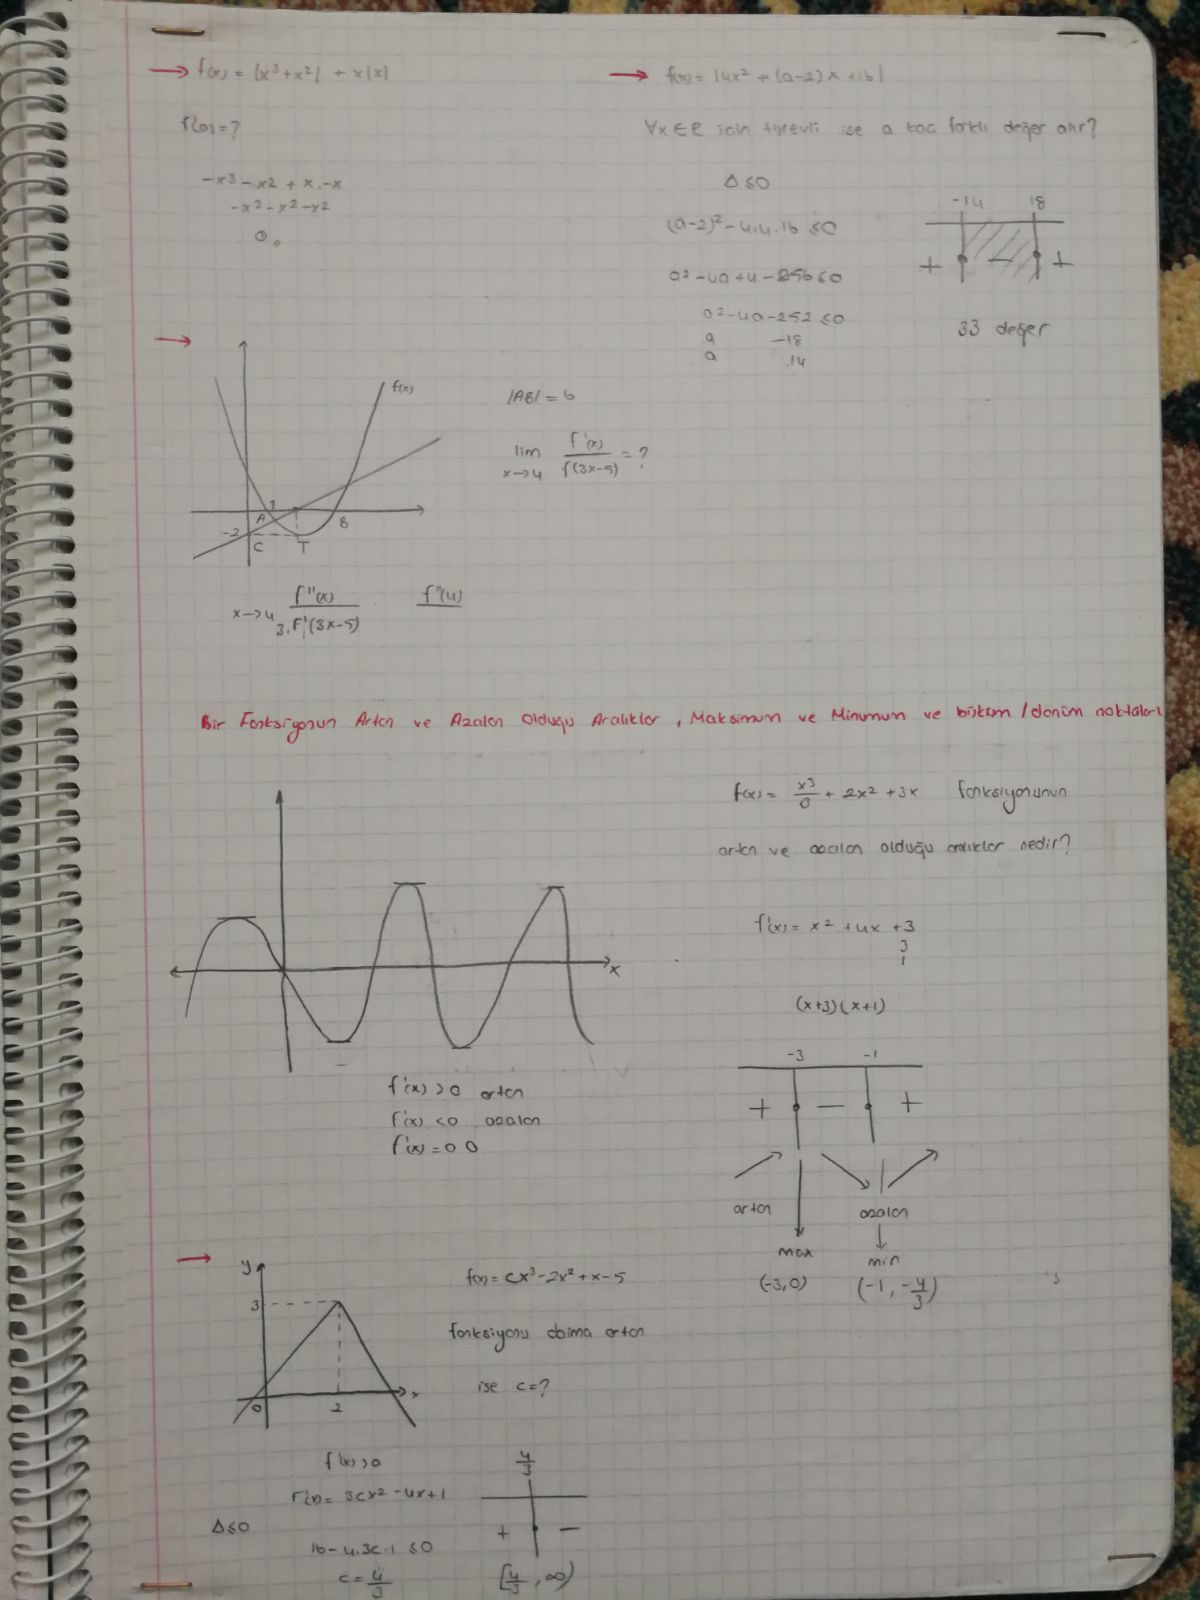 → f(x) = |x³+x²| + x|x|
f'(0)=?
-x³-x²+x.-x
-x³-x²-x²
0
→ f(x)= |4x² + (a-2)x +16|
∀x∈R icin türevli ise a kac farklı değer alır?
Δ≤0
(a-2)²-4.4.16 ≤0
a²-4a+4-256≤0
a²-4a-252≤0
a -18
a 14
-14 18
+ - +
33 değer
→
f(x)
|AB| = 6
lim f'(x) / f(3x-5) = ?
x→4
1
A B
-2
C T
x→4 f''(x) / 3.f'(3x-5) f''(4)
Bir Fonksiyonun Artan ve Azalan Olduğu Aralıklar, Maksimum ve Minumum ve büküm / dönüm noktaları
x
f'(x) >0 artan
f'(x) <0 azalan
f'(x) =0 0
f(x)= x³/0 + 2x² +3x fonksiyonunun
artan ve azalan olduğu aralıklar nedir?
f'(x)= x² +4x +3
3
1
(x+3)(x+1)
-3 -1
+ - +
artan azalan
max min
(-3,0) (-1,-4/3)
→
y
3
0 2 x
f(x)= cx³-2x²+x-5
fonksiyonu daima artan
ise c=?
f'(x)>0
f'(x)= 3cx²-4x+1
Δ≤0
16-4.3c.1 ≤0
c=4/3
4/3
+ -
[4/3, ∞)